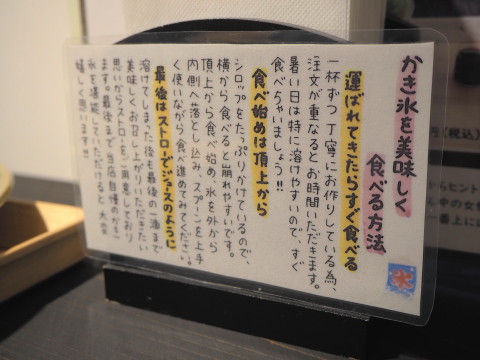 かき氷を美味しく
食べる方法
運ばれてきたらすぐ食べる
一杯ずつ丁寧にお作りしている為、
注文が重なるとお時間いただきます。
暑い日は特に溶けやすいので、すぐ
食べちゃいましょう!!
食べ始めは頂上から
シロップをたっぷりかけているので、
横から食べると崩れやすいです。
頂上から食べ始め、氷を外から
内側へ落とし込み、スプーンを上手
く使いながら食べ進めてみてください。
最後はストローでジュースのように
溶けてしまった後も最後の一滴まで
美味しくお召し上がりいただきたい
思いからストローをご用意しており
ます。最後まで当店自慢のかき
氷を堪能していただけると大変
嬉しく思います!!
氷
円(税込)
からヒント
ん中の女
番上に